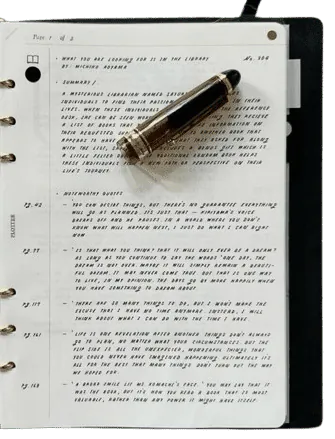 Page 1 of 2
• WHAT YOU ARE LOOKING FOR IS IN THE LIBRARY
BY: MICHIKO AOYAMA
• SUMMARY /
A MYSTERIOUS LIBRARIAN NAMED
INDIVIDUALS TO FIND THEIR IN THEIR
LIVES. WHEN THESE INDIVIDUALS REFERENCE
DESK, SHE CAN BE SEEN RECEIVE
A LIST OF BOOKS THAT INFORMATION ON
THEIR REQUESTED ANOTHER BOOK THAT
APPEARS TO ASKED FOR. ALONG
WITH THE LIST, BONUS GIFT WHICH IS
A LITTLE FELTED BOOK HELPS
THESE INDIVIDUALS PERSPECTIVE ON THEIR
LIFE'S
• NOTEWORTHY QUOTES
— 'YOU CAN DESIRE THINGS, BUT THERE'S NO GUARANTEE EVERYTHING
WILL GO AS PLANNED. ITS JUST THAT — HIROYAMA'S VOICE
DROPS OFF AND HE PAUSES. IN A WORLD WHERE YOU DON'T
KNOW WHAT WILL HAPPEN NEXT, I JUST DO WHAT I CAN RIGHT
NOW.
pg. 77 — 'IS THAT WHAT YOU THINK? THAT IT WILL ONLY EVER BE A DREAM?
AS LONG AS YOU CONTINUE TO SAY THE WORDS 'ONE DAY', THE
DREAM IS NOT OVER. MAYBE IT WILL SIMPLY REMAIN A BEAUTI-
FUL DREAM. IT MAY NEVER COME TRUE BUT THAT IS ONE WAY
TO LIVE, IN MY OPINION. THE DAYS GO BY MORE HAPPILY WHEN
YOU HAVE SOMETHING TO DREAM ABOUT.
— 'THERE ARE SO MANY THINGS TO DO, BUT I WON'T MAKE THE
EXCUSE THAT I HAVE NO TIME ANYMORE. INSTEAD, I WILL
THINK ABOUT WHAT I CAN DO WITH THE TIME I HAVE.'
— 'LIFE IS ONE REVELATION AFTER ANOTHER. THINGS DON'T ALWAYS
GO TO PLAN, NO MATTER WHAT YOUR CIRCUMSTANCES. BUT THE
FLIP SIDE IS ALL THE UNEXPECTED, WONDERFUL THINGS THAT
YOU COULD NEVER HAVE IMAGINED HAPPENING. ULTIMATELY IT'S
ALL FOR THE BEST THAT MANY THINGS DON'T TURN OUT THE WAY
WE HOPED FOR.
— 'A BROAD SMILE LIT MS KOMACHI'S FACE. 'YOU MAY SAY THAT IT
WAS THE BOOK, BUT IT'S HOW YOU READ A BOOK THAT IS MOST
VALUABLE, RATHER THAN ANY POWER IT MIGHT HAVE ITSELF.
PLOTTER